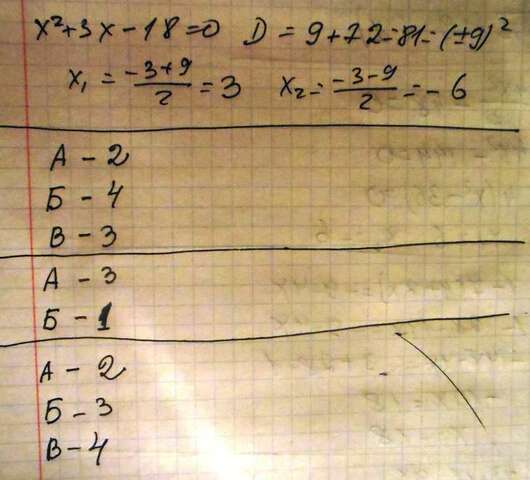 x²+3x-18=0 D = 9+72=81=(±9)²
x₁ = (-3+9)/2 = 3 x₂ = (-3-9)/2 = -6
А - 2
Б - 4
В - 3
А - 3
Б - 1
А - 2
Б - 3
В - 4